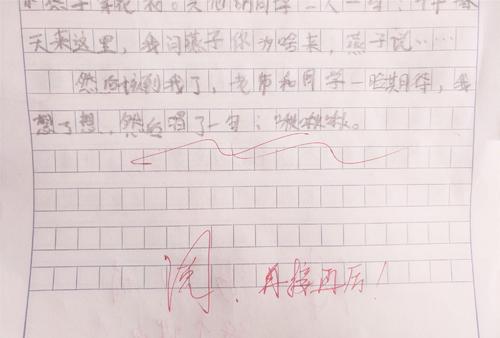 燕子穿花衣。其他的同学一人一句：“年年春
天来这里，我问燕子你为啥来，燕子说……
然后该到我了，老师和同学一脸期待，我
想了想，然后唱了一句：“啾啾啾。
阅，再接再厉！